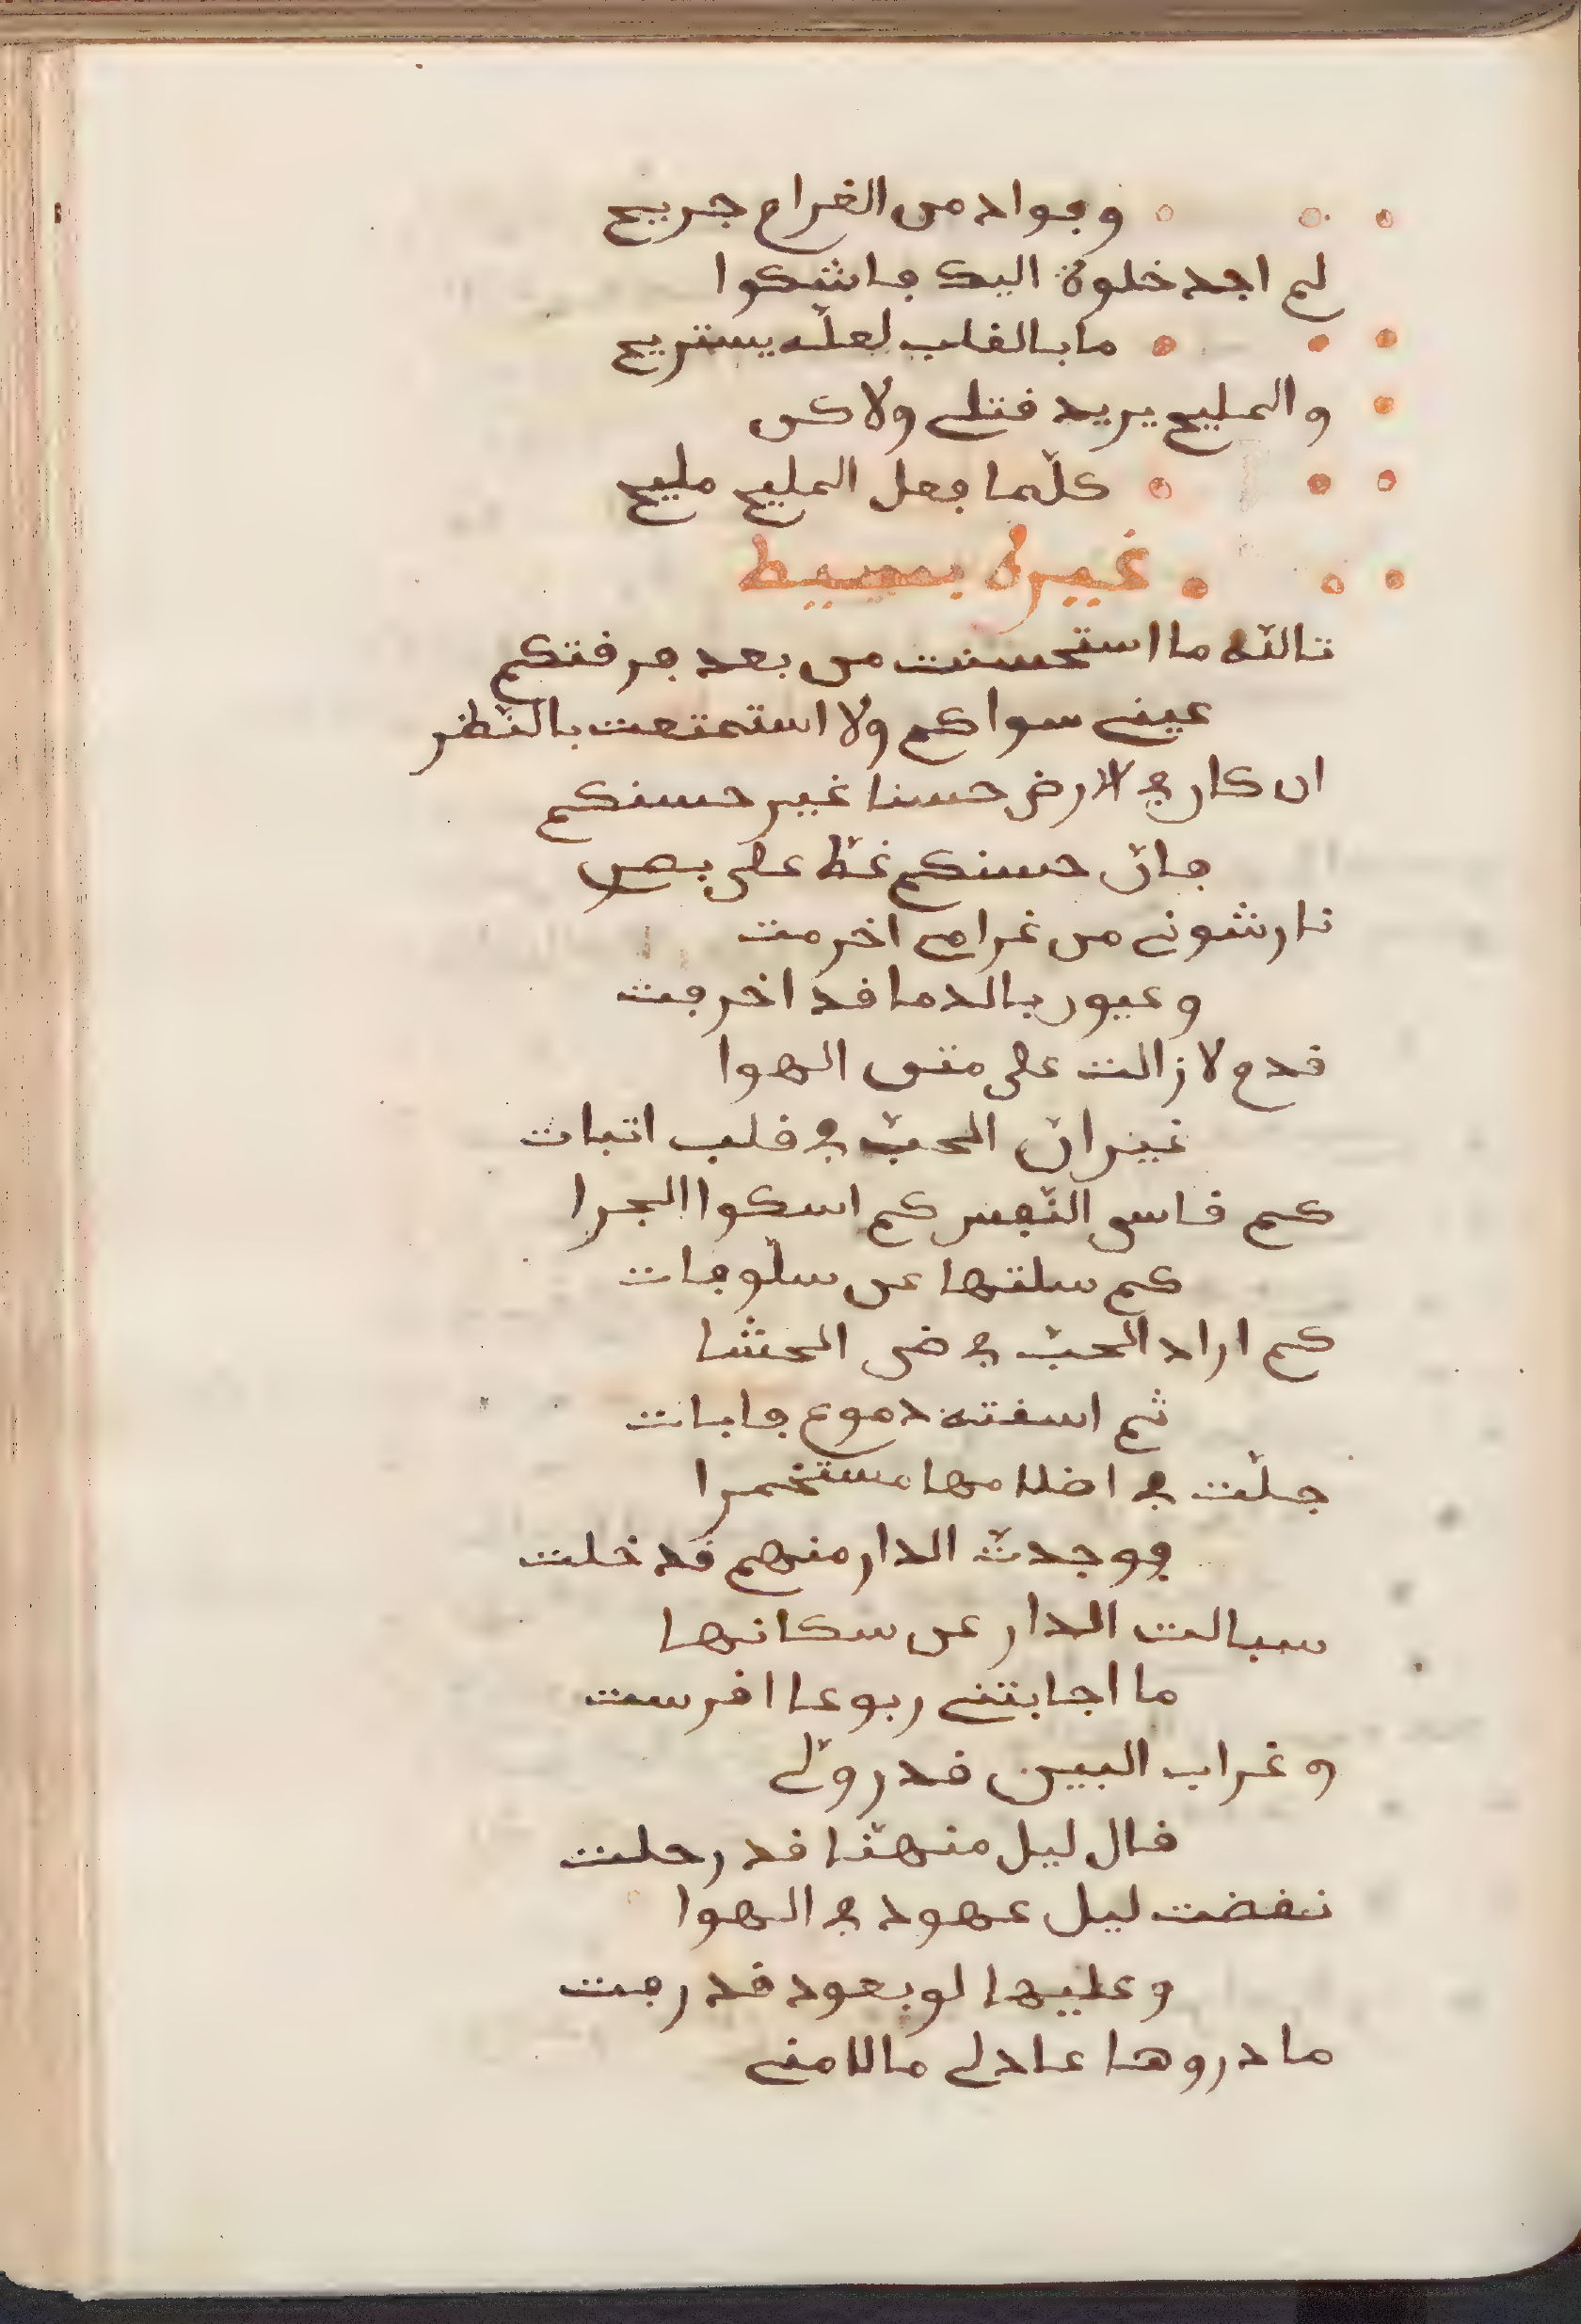 وفواد من الغرام جريح
لم اجد خلوة اليك فاشكوا
ما بالقلب لعلّه يستريح
والمليح يريد قتلي ولاكن
كلّما فعل المليح مليح
غيره بسيط
تاللّه ما استحسنت من بعد فرقتكم
عيني سواكم ولا استمتعت بالنّظر
ان كان في الارض حسنا غير حسنكم
فانّ حسنكم غطّ على بصر
نار شوني من غرامي اخرمت
وعيون بالدما قد اخرجت
قدم لا زالت على متن الهوا
غيران الحبّ في قلب اتبات
كم قاسى النّفس كم اسكوا الجرا
كم سلتها عن سلّو فات
كم اراد الحبّ في ضى الحشا
ثم اسقته دموع فابات
جلّت في اضلامها مستخمرا
فوجدتّ الدار منهم قد خلت
سبالت الدار عن سكانها
ما اجابتني ربوعا اقرست
وغراب البين قد روّلي
قال ليل منهنّا قد رحلت
نقضت ليل عهود في الهوا
وعليها لو بعود قد رجت
ما دروها عادلي ما لامني